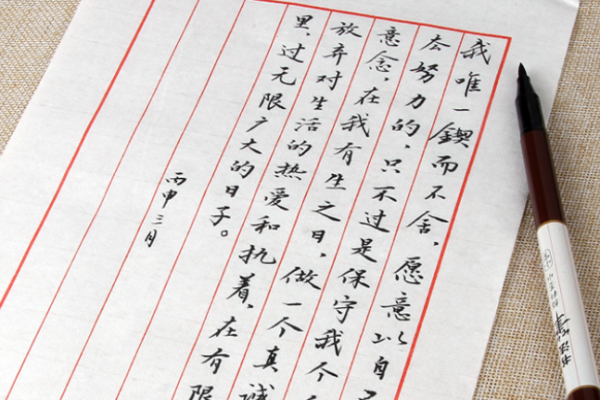 我唯一鍥而不舍，愿意以自
去努力的，只不过是保守我个
意念，在我有生之日，做一个真诚
放弃对生活的热爱和执着，在有限
里，过无限广大的日子。
丙申三月